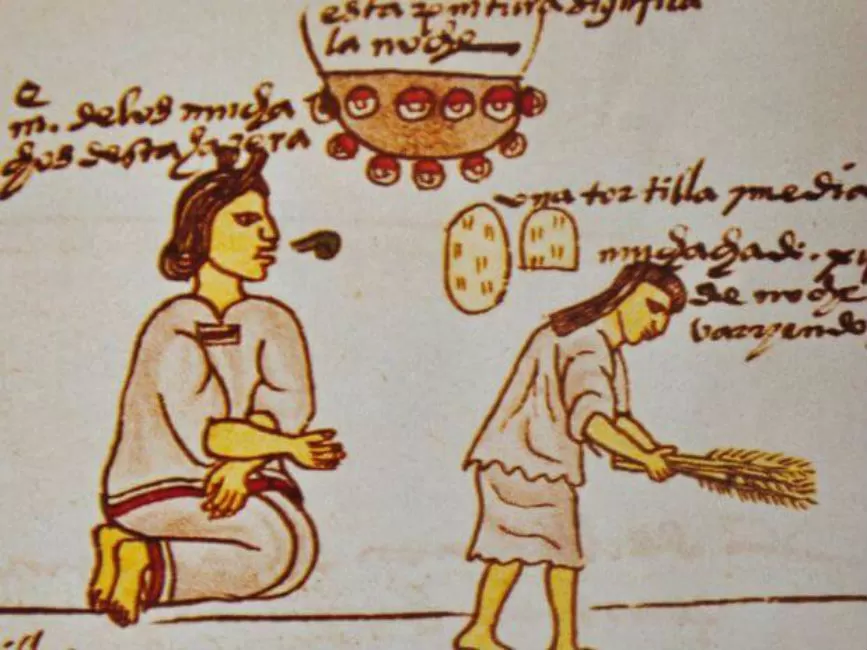 esta pintura dignifica
la noche
e
m. de los mucha
chos desta ha zera
una tortilla y media
muchacha di.
de noche
barryendo